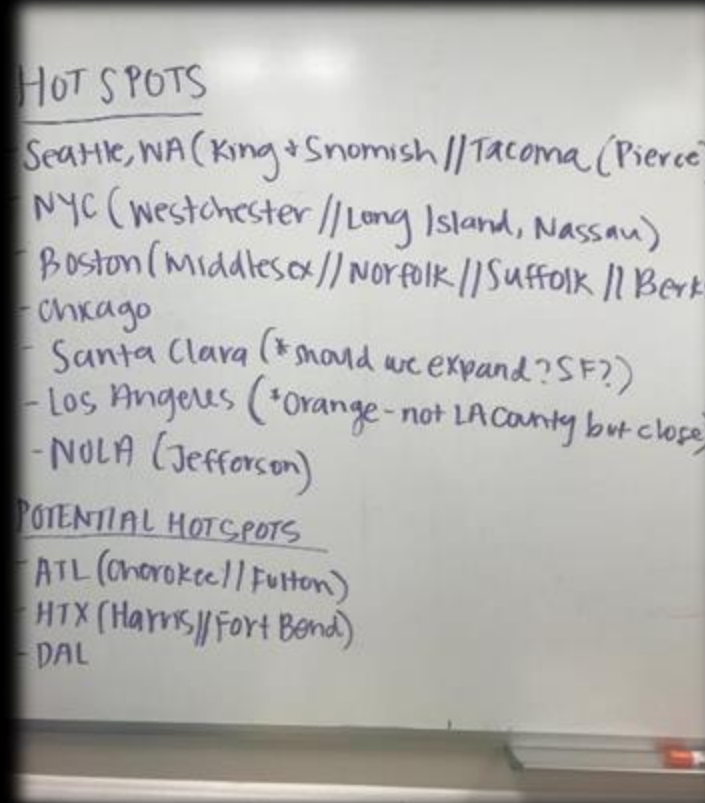 HOT SPOTS
- Seattle, WA (King + Snomish // Tacoma (Pierce)
- NYC (Westchester // Long Island, Nassau)
- Boston (Middlesex // Norfolk // Suffolk // Berk
- Chicago
- Santa Clara (*should we expand? SF?)
- Los Angeles (*Orange - not LA County but close)
- NOLA (Jefferson)
POTENTIAL HOTSPOTS
- ATL (Cherokee // Fulton)
- HTX (Harris // Fort Bend)
- DAL